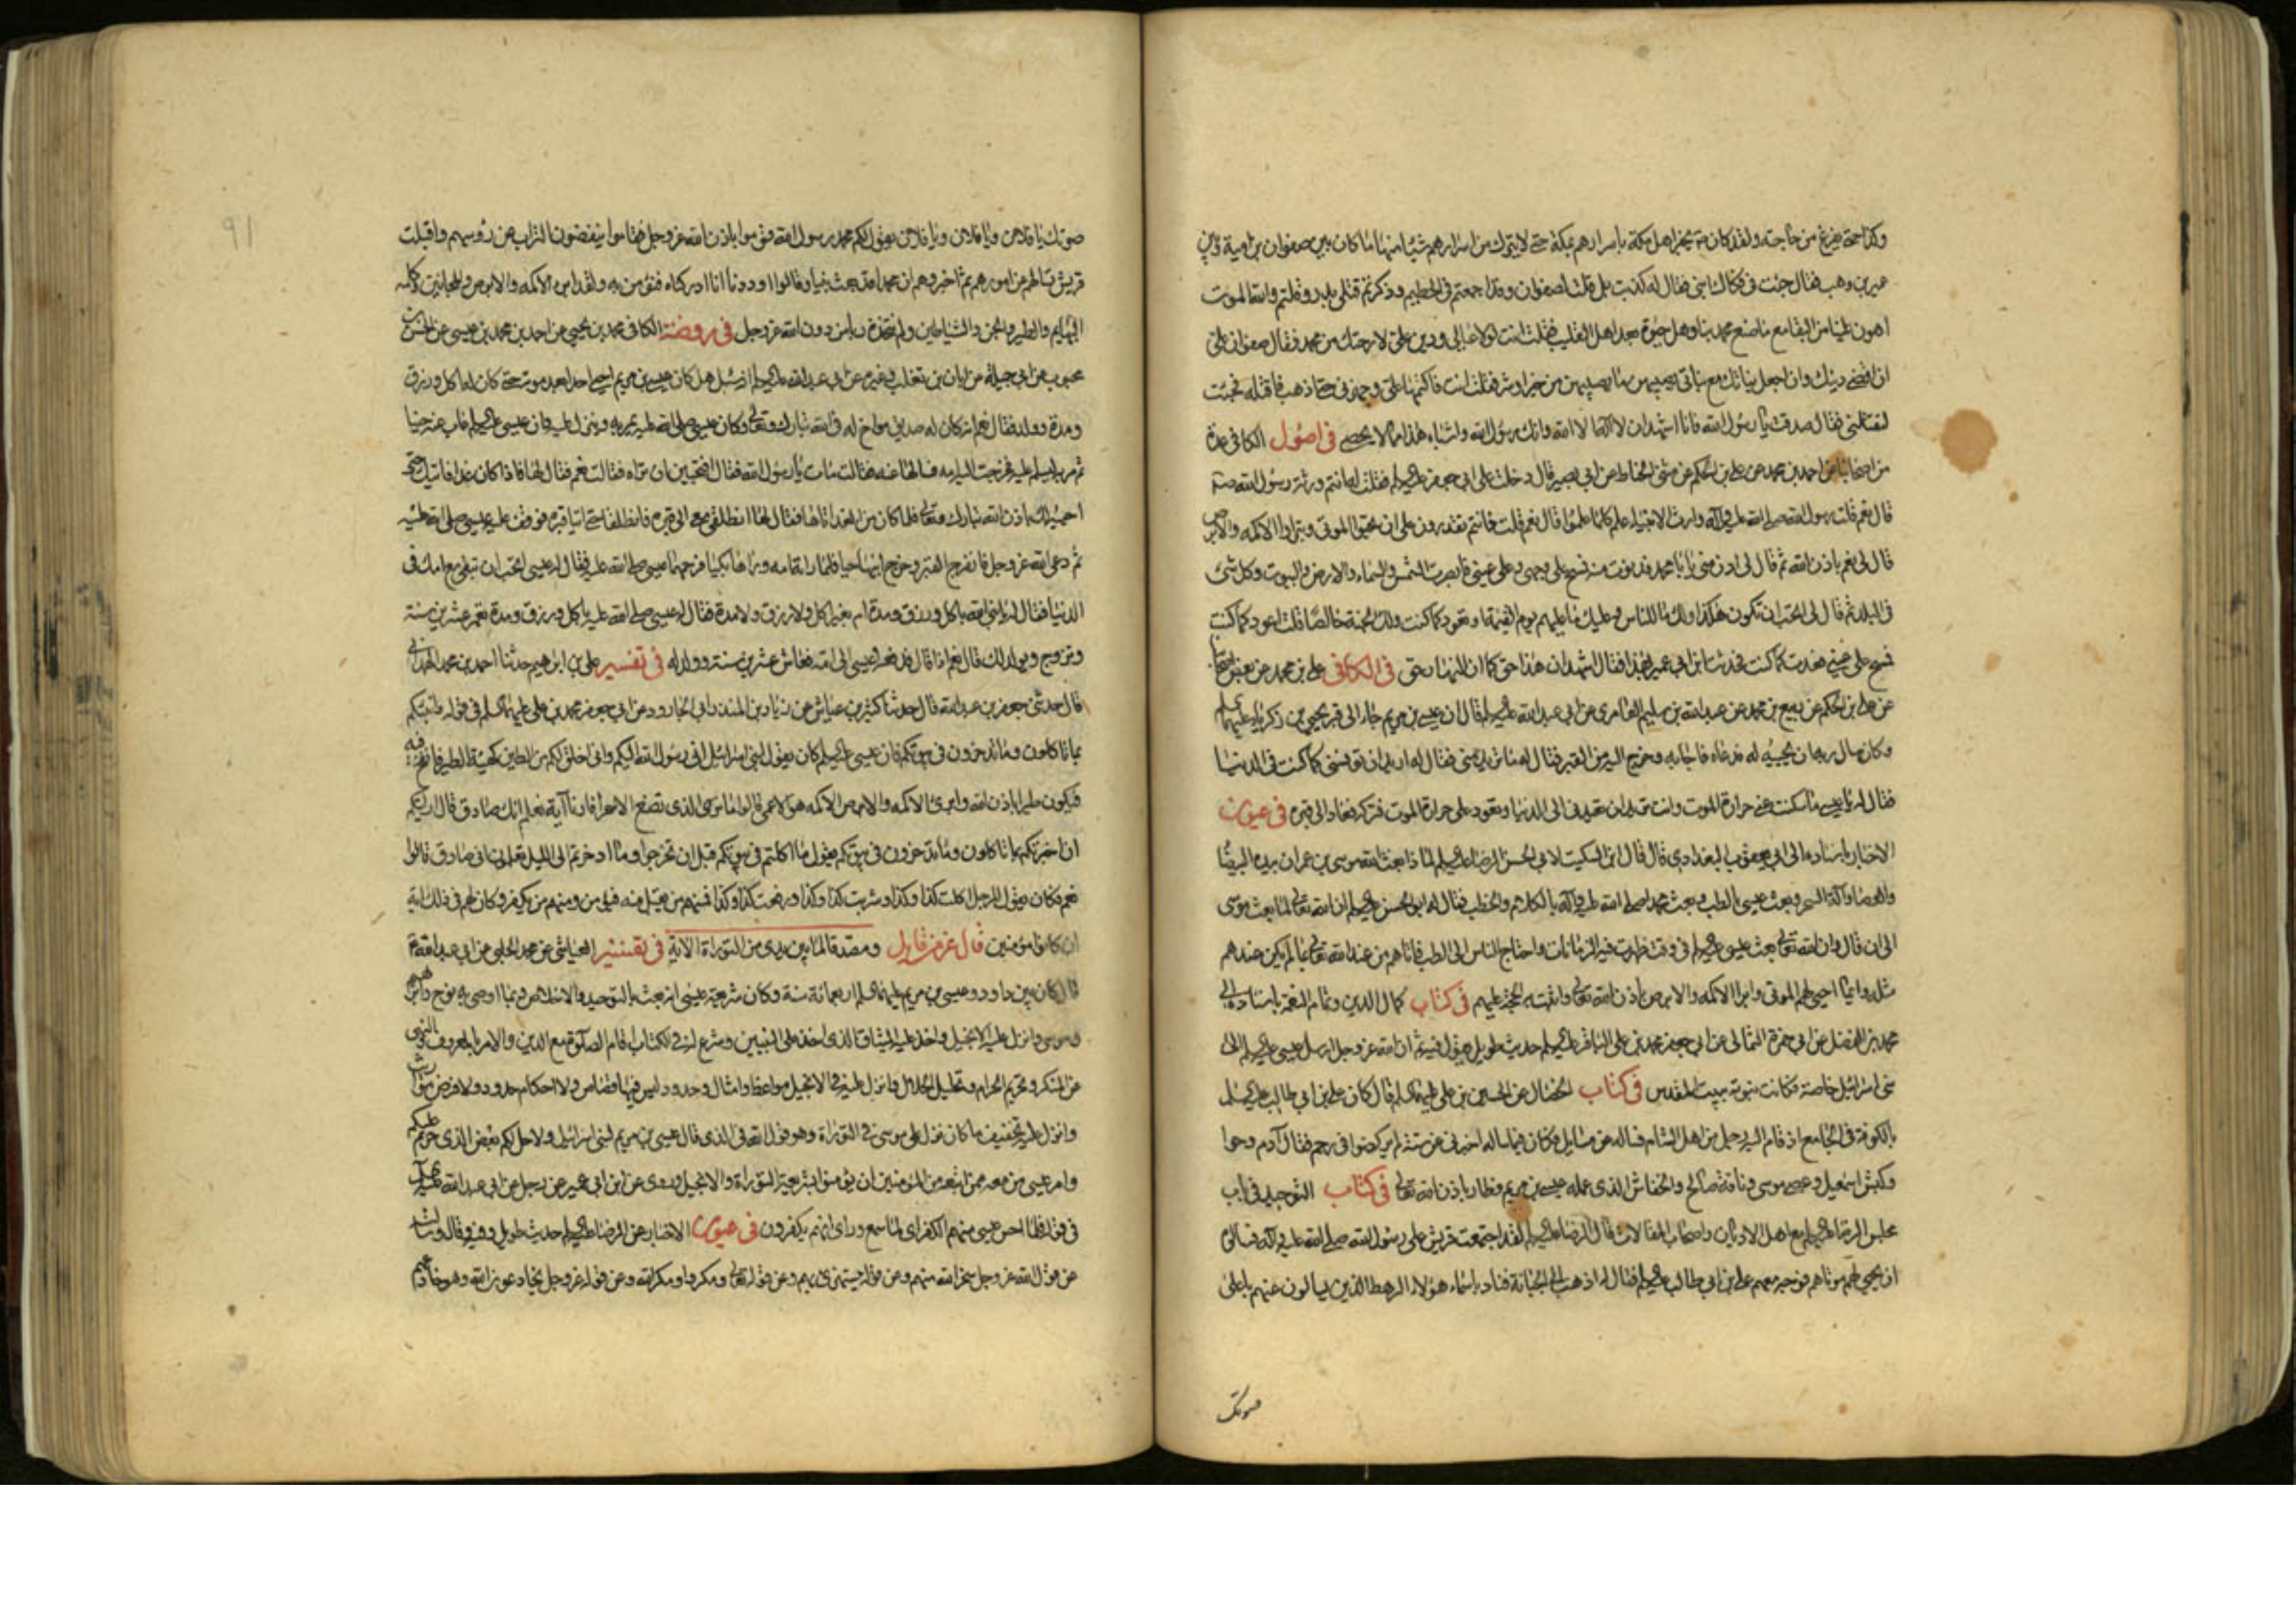 وكذا حتى يفرغ من حاجته ولقد كان صلى يخبر اهل مكة باسرارهم بمكة حتى لا يترك من اسرارهم شيئا منها ما كان بين صفوان بن امية وبين
عمير بن وهب فقال جئت في فكاك ابني فقال له كذبت بل قلت لصفوان وقد اجتمعتم في الحطيم وذكرتم قتلى بدر وقلتم والله الموت
اهون علينا من البقا مع ما صنع محمد بنا وهل حيوة بعد اهل القليب فقلت انت لولا عيالي ودين على لارحتك من محمد فقال صفوان على
ان اقضي دينك وان اجعل بناتك مع بناتي يصيبهن ما يصيبهن من خير او شر فقلت انت فاكتمها على وجهزني حتى اذهب فاقتله فجئت
لتقتلني فقال صدقت يا رسول الله فانا اشهد ان لا اله الا الله وانك رسول الله واشباه هذا مما لا يحصى في اصول الكافي عدة
من اصحابنا عن احمد بن محمد عن علي بن الحكم عن مثنى الحناط عن ابي بصير قال دخلت على ابي جعفر عليه السلم فقلت له انتم ورثة رسول الله ص
قال نعم قلت رسول الله صلى الله عليه وآله وارث الانبياء علم كلما علموا قال نعم قلت فانتم تقدرون على ان تحيوا الموتى وتبرؤا الاكمه والابرص
قال لي نعم باذن الله ثم قال لي ادن منى يا با محمد فدنوت منه فمسح على وجهي وعلى عيني فابصرت الشمس والسماء والارض والبيوت وكل شئ
في البلد ثم قال لي اتحب ان تكون هكذا ولك ما للناس وعليك ما عليهم يوم القيمة او تعود كما كنت ولك الجنة خالصا قلت اعود كما كنت
فمسح على عيني فعدت كما كنت فحدثت ابن ابي عمير بهذا فقال اشهد ان هذا حق كما ان النهار حق في الكافي علي بن محمد عن بعض اصحابنا
عن علي بن الحكم عن ربيع بن محمد عن عبد الله بن سليم العامري عن ابي عبد الله عليه السلم قال ان عيسى بن مريم جاء الى قبر يحيى بن زكريا عليهما السلم
وكان سال ربه ان يحييه له فدعاه فاجابه وخرج اليه من القبر فقال له ما تريد منى فقال له اريد ان تؤنسني كما كنت في الدنيا
فقال له يا عيسى ما سكنت عني حرارة الموت وانت تريد ان تعيدني الى الدنيا وتعود على حرارة الموت فتركه فعاد الى قبره في عيون
الاخبار باسناده الى ابي يعقوب البغدادي قال قال ابن السكيت لابي الحسن الرضا عليه السلم لما ذا بعث الله موسى بن عمران بيده البيضا
والعصا وآلة السحر وبعث عيسى بالطب وبعث محمدا صلى الله عليه وآله بالكلام والخطب فقال له ابو الحسن عليه السلم ان الله تعالى لما بعث موسى
الى ان قال وان الله تعالى بعث عيسى عليه السلم في وقت ظهرت فيه الزمانات واحتاج الناس الى الطب فاتاهم من عند الله تعالى بما لم يكن عندهم
مثله وبما احيى لهم الموتى وابرا الاكمه والابرص باذن الله تعالى واثبت به الحجة عليهم في كتاب كمال الدين وتمام النعمة باسناده الى
محمد بن الفضل عن ابي حمزة الثمالي عن ابي جعفر محمد بن علي الباقر عليه السلم حديث طويل يقول فيه ثم ان الله عز وجل ارسل عيسى عليه السلم الى
بني اسرائيل خاصة فكانت نبوته ببيت المقدس في كتاب الخصال عن الحسين بن علي عليهما السلم قال كان علي بن ابي طالب عليه السلم
بالكوفة في الجامع اذ قام اليه رجل من اهل الشام فساله عن مسايل فكان فيما ساله اخبرني عن ستة لم يركضوا في رحم فقال آدم وحوا
وكبش اسمعيل وعصى موسى وناقة صالح والخفاش الذى عمله عيسى بن مريم فطار باذن الله تعالى في كتاب التوحيد في باب
مجلس الرضا عليه السلم مع اهل الاديان واصحاب المقالات قال الرضا عليه السلم لقد اجتمعت قريش على رسول الله صلى الله عليه وآله فسالوه
ان يحيي لهم موتاهم فوجه معهم علي بن ابي طالب عليه السلم فقال له اذهب الى الجبانة فناد باسماء هؤلاء الرهط الذين يسالون عنهم باعلى
صوتك
91
صوتك يا فلان ويا فلان ويا فلان يقول لكم محمد رسول الله قوموا باذن الله عز وجل فقاموا ينفضون التراب عن رؤسهم واقبلت
قريش تسالهم عن امورهم ثم اخبروهم ان محمدا قد بعث نبيا وقالوا وددنا انا ادركناه فنؤمن به ولقد ابرا الاكمه والابرص والمجانين وكلمه
البهايم والطير والجن والشياطين ولم نتخذه ربا من دون الله عز وجل في روضة الكافي محمد بن يحيى عن احمد بن محمد بن عيسى عن الحسن بن
محبوب عن ابي جميلة عن ابان بن تغلب وغيره عن ابي عبد الله عليه السلم انه سئل هل كان عيسى بن مريم احيى احدا بعد موته حتى كان له اكل ورزق
ومدة وولد فقال نعم انه كان له صديق مواخ له في الله تبارك وتعالى وكان عيسى صلى الله عليه يمر به وينزل عليه وان عيسى عليه السلم غاب عنه حينا
ثم مر به ليسلم عليه فخرجت اليه امه فسالها عنه فقالت مات يا رسول الله فقال افتحبين ان تراه فقالت نعم فقال لها فاذا كان غدا فاتيك حتى
احييه لك باذن الله تبارك وتعالى فلما كان من الغد اتاها فقال لها انطلقي معي الى قبره فانطلقا حتى اتيا قبره فوقف عليه عيسى صلى الله عليه
ثم دعى الله عز وجل فانفرج القبر وخرج ابنها حيا فلما راته امه وراها بكيا فرحمهما عيسى صلى الله عليه فقال له عيسى اتحب ان تبقى مع امك في
الدنيا فقال له يا نبي الله باكل ورزق ومدة ام بغير اكل ولا رزق ولا مدة فقال له عيسى صلى الله عليه باكل ورزق ومدة تعمر عشرين سنة
وتزوج ويولد لك قال نعم اذا قال فدفعه عيسى الى امه فعاش عشرين سنة وولد له في تفسير علي بن ابراهيم حدثنا احمد بن محمد الهمداني
قال حدثني جعفر بن عبد الله قال حدثنا كثير بن عياش عن زياد بن المنذر ابي الجارود عن ابي جعفر محمد بن علي عليهما السلم في قوله وانبئكم
بما تاكلون وما تدخرون في بيوتكم فان عيسى عليه السلم كان يقول لبني اسرائيل اني رسول الله اليكم واني اخلق لكم من الطين كهيئة الطير فانفخ فيه
فيكون طيرا باذن الله وابرئ الاكمه والابرص الاكمه هو الاعمى قالوا ما نرى الذى تصنع الا سحرا فارنا آية نعلم انك صادق قال ارايتكم
ان اخبرتكم بما تاكلون وما تدخرون في بيوتكم يقول ما اكلتم في بيوتكم قبل ان تخرجوا وما ادخرتم الى الليل تعلمون اني صادق قالوا
نعم فكان يقول للرجل اكلت كذا وكذا وشربت كذا وكذا ورفعت كذا وكذا فمنهم من يقبل منه فيؤمن ومنهم من يكفر وكان لهم في ذلك آية
ان كانوا مؤمنين قال عز من قايل ومصدقا لما بين يدى من التوراة الآية في تفسير العياشي عن محمد الحلبي عن ابي عبد الله ع
قال كان بين داود وعيسى بن مريم عليهما السلم اربعمائة سنة وكان شريعة عيسى انه بعث بالتوحيد والاخلاص وبما اوصى به نوح وابرهيم
وموسى وانزل عليه الانجيل واخذ عليه الميثاق الذى اخذ على النبيين وشرع له في الكتاب اقام الصلوة مع الدين والامر بالمعروف والنهي
عن المنكر وتحريم الحرام وتحليل الحلال وانزل عليه في الانجيل مواعظ وامثال وحدود ليس فيها قصاص ولا احكام حدود ولا فرض مواريث
وانزل عليه تخفيف ما كان نزل على موسى في التوراة وهو قول الله في الذى قال عيسى بن مريم لبني اسرائيل ولاحل لكم بعض الذى حرم عليكم
وامر عيسى من معه ممن اتبعه من المؤمنين ان يؤمنوا بشريعة التوراة والانجيل وروى عن ابن ابي عمير عن رجل عن ابي عبد الله عليه السلم
في قوله فلما احس عيسى منهم الكفر اى لما سمع وراى انهم يكفرون في عيون الاخبار عن الرضا عليه السلم حديث طويل وفيه قال وسالته
عن قول الله عز وجل سخر الله منهم وعن قوله يستهزئ بهم وعن قوله تعالى ومكروا ومكر الله وعن قوله عز وجل يخادعون الله وهو خادعهم